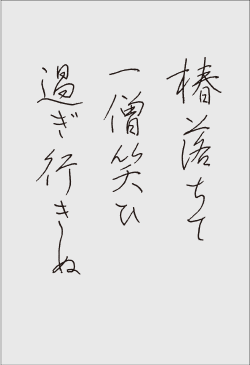 椿落ちて
一僧笑ひ
過ぎ行きぬ